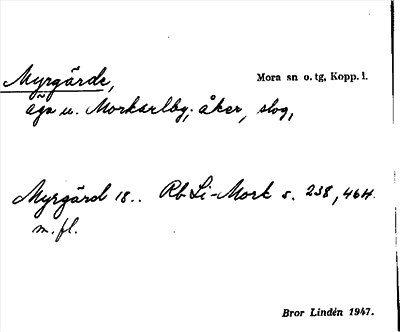 Myrgärde,
Mora sn o. tg, Kopp. l.
äga u. Morkarlby; åker, slog,
Myrgärd 18.. Rb Li-Mork s. 238, 464.
m. fl.
Bror Lindén 1947.